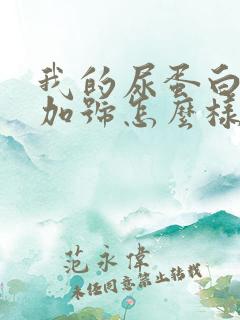 我的尿蛋白
加號怎麼樣
范永偉
未经同意禁止转载